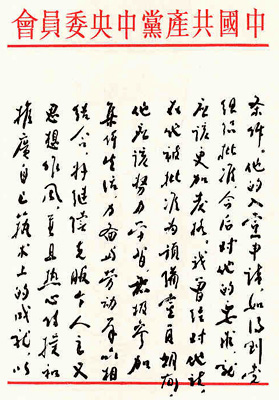 中國共產黨中央委員會
条件。他的入党申请如得到党
组织批准,今后对他的要求,就
应该更加严格。我曾经对他说,
在他被批准为预备党员期间,
他应该努力学习,积极参加
集体生活,力图与劳动群众相
结合,并继续克服个人主义
思想作风,更且热心传授和
推广自己藝术上的成就,以